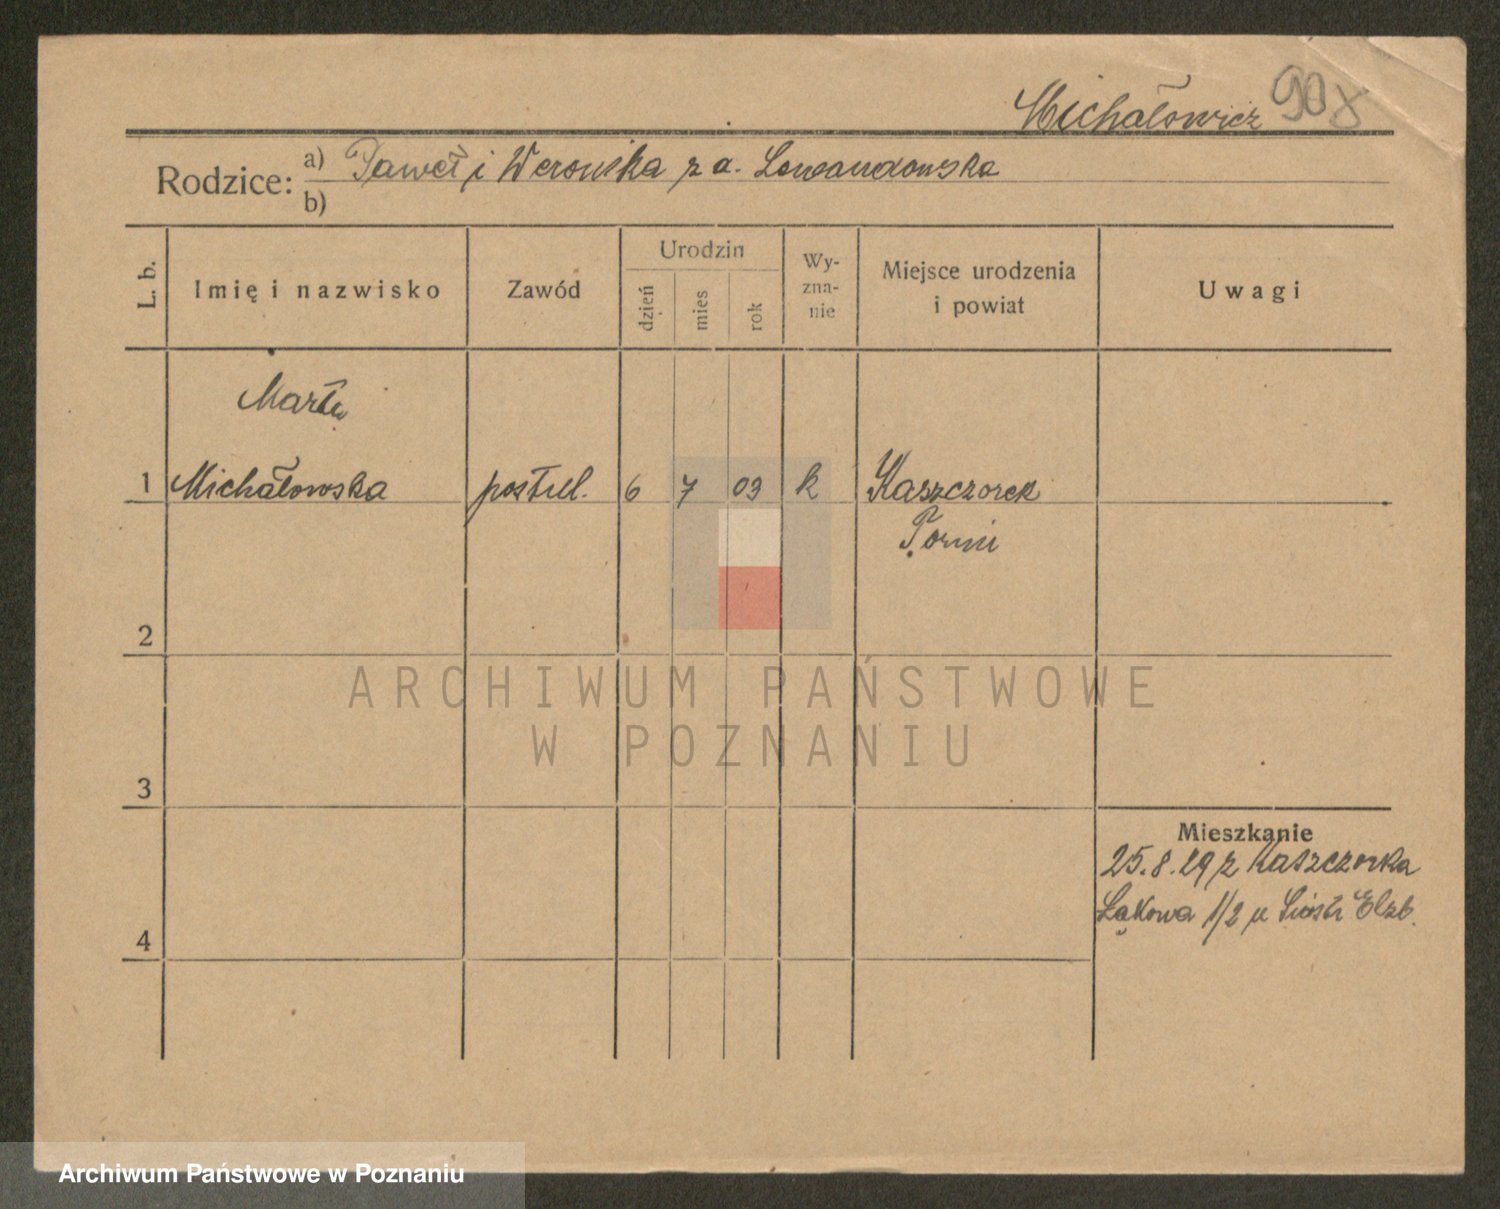 Michałowicz 908
Rodzice: a) Paweł i Weronika z d. Lewandowska
b)
L. b. Imię i nazwisko Zawód Urodzin dzień mies rok Wyznanie Miejsce urodzenia i powiat Uwagi
Marta
1 Michałowska postul. 6 7 03 k Kaszczorek
Toruń
2
ARCHIWUM PAŃSTWOWE
W POZNANIU
3
Mieszkanie
25.8.29 z Kaszczorka
Łąkowa 1/2 u Sióstr Elżb.
4
Archiwum Państwowe w Poznaniu